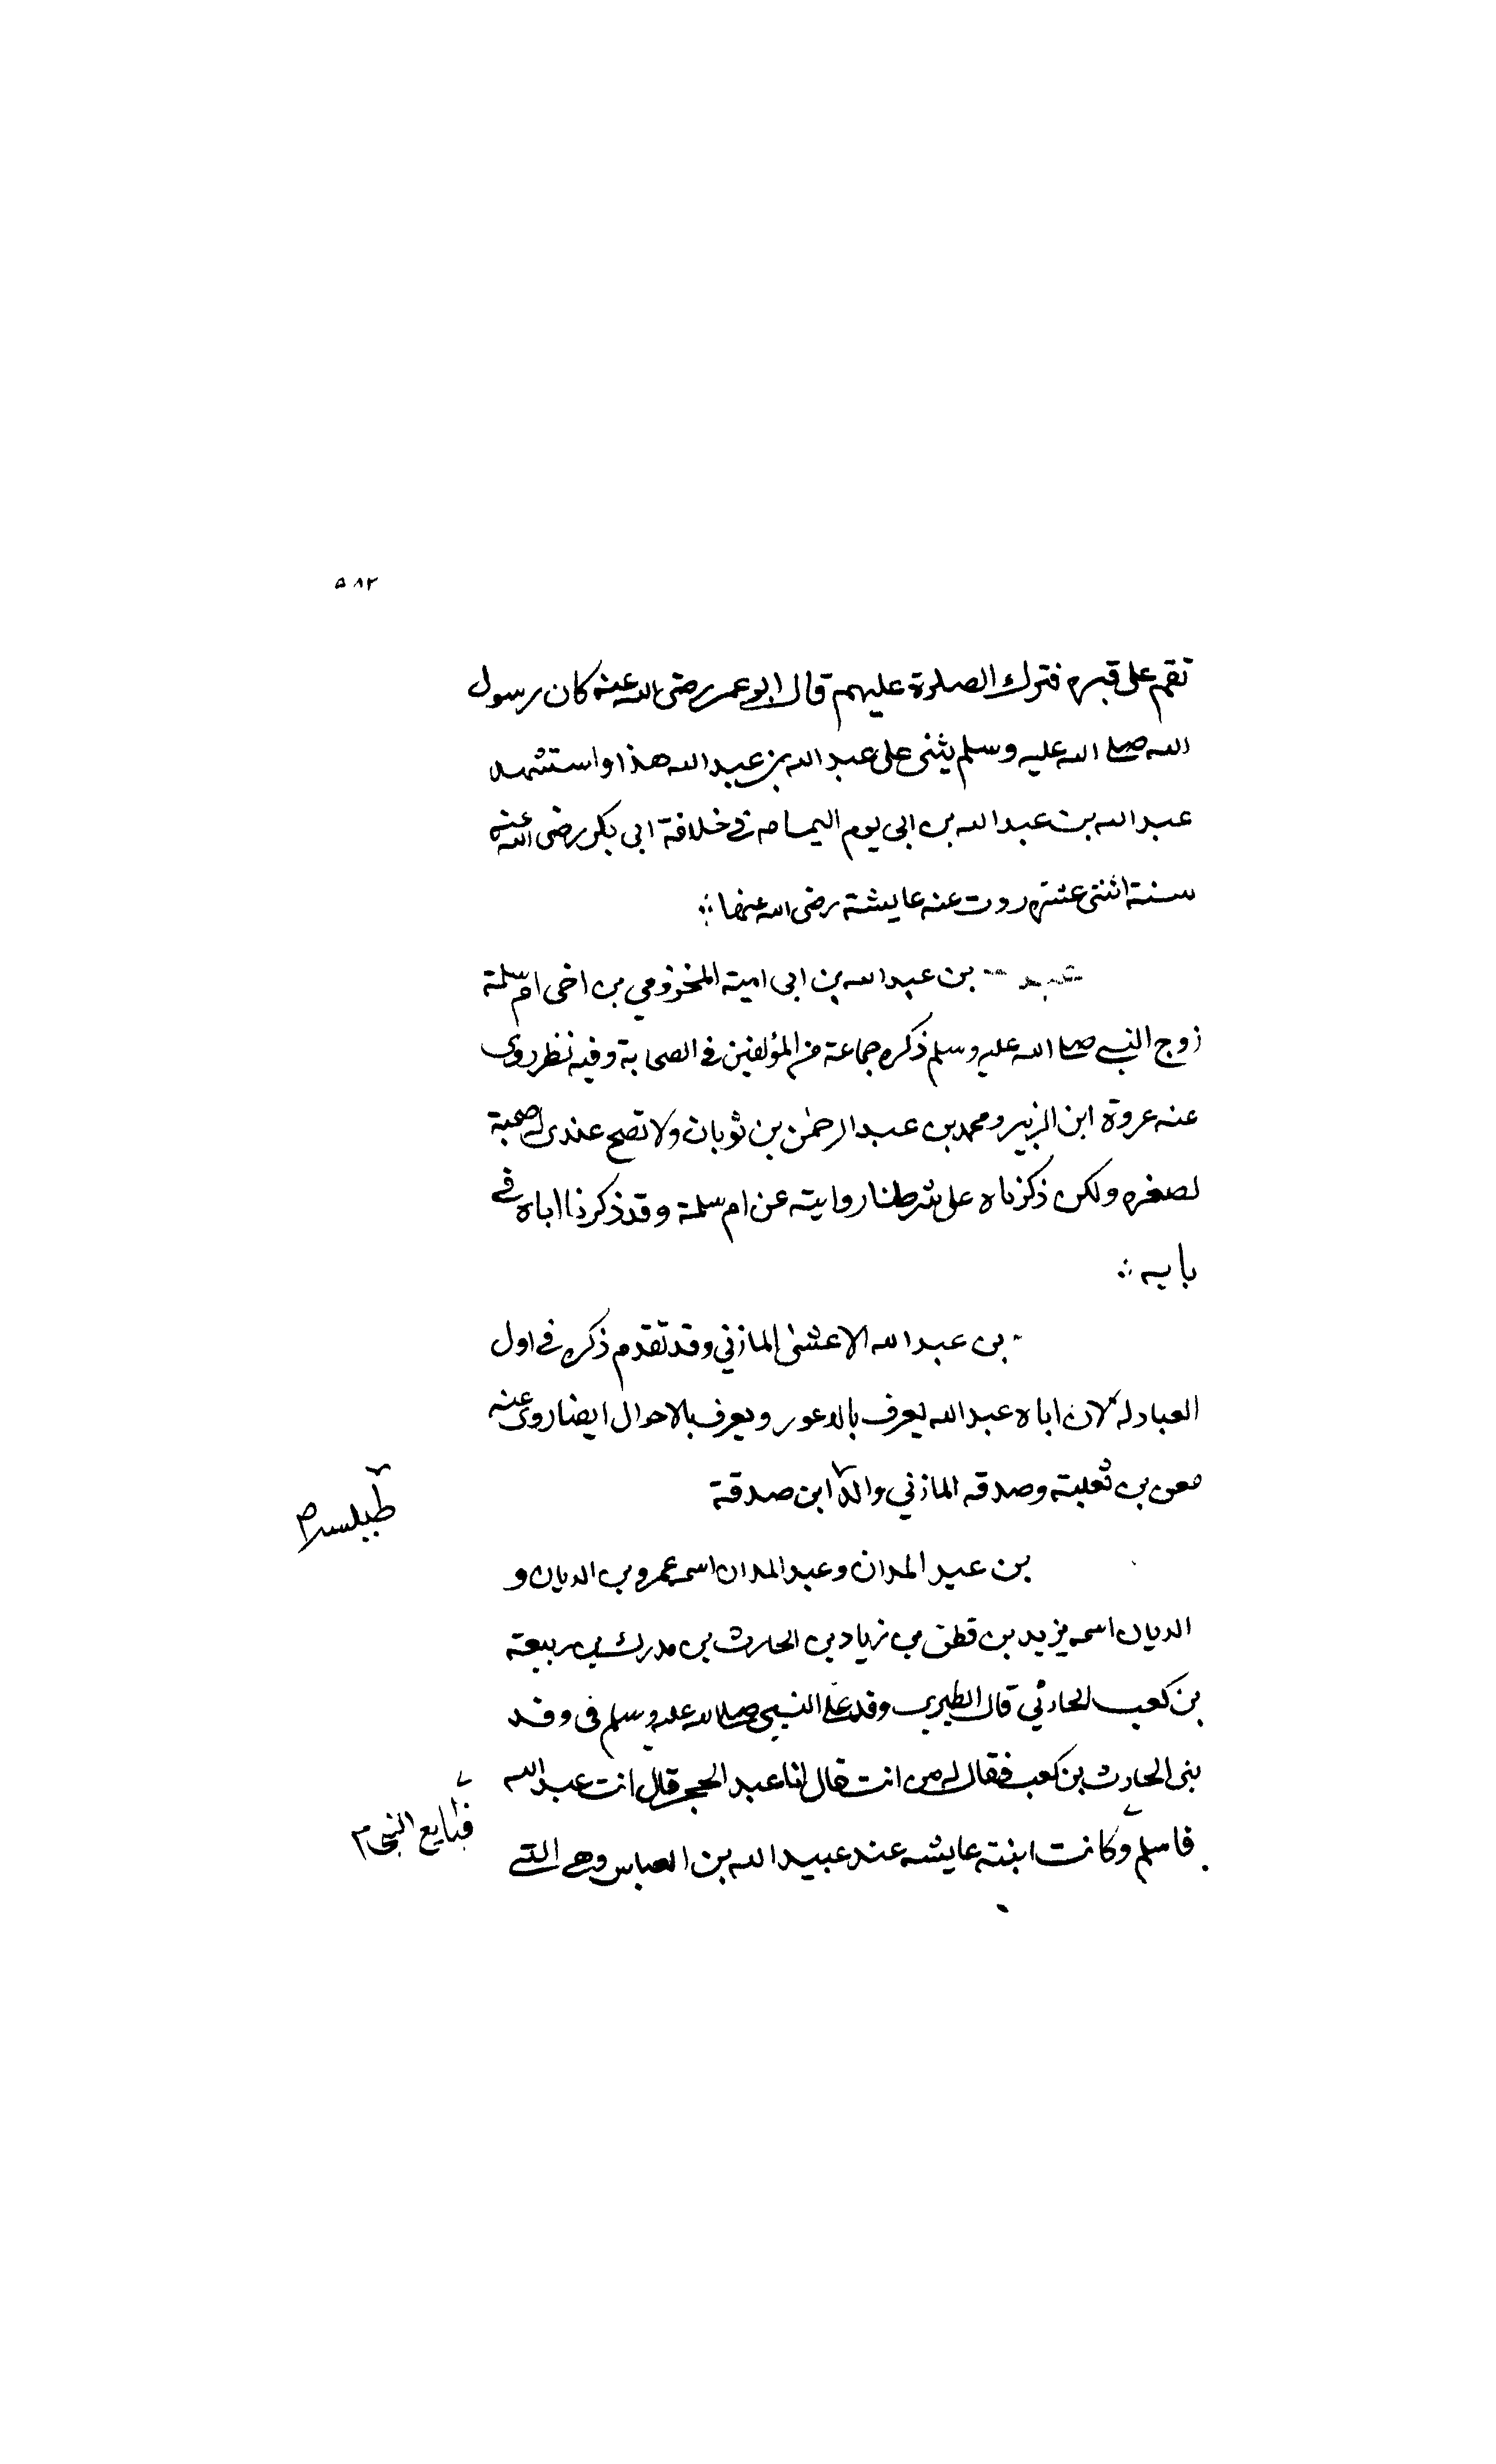 ٥٨٢
تقم على قبره فترك الصلوة عليهم قال ابو عمر رضى الله عنه كان رسول
الله صلى الله عليه وسلم يثنى على عبد الله بن عبد الله هذا واستشهد
عبد الله بن عبد الله بن ابى يوم اليمامه في خلافة ابى بكر رضى الله عنه
سنة اثنتى عشره روت عنه عايشة رضى الله عنها
عبد بن عبد الله بن ابى امية المخزومي بن اخى ام سلمة
زوج النبي صلى الله عليه وسلم ذكره جماعة من المؤلفين في الصحابة وفيه نظر روى
عنه عروة ابن الزبير ومحمد بن عبد الرحمن بن ثوبان ولا تصح عندى له صحبة
لصغره ولكن ذكرناه على شرطنا روايته عن ام سلمة وقد ذكرنا اباه في
بابه
بن عبد الله الاعشى المازني وقد تقدم ذكره في اول
العبادله لان اباه عبد الله يعرف بالاعور ويعرف بالاحوال ايضا روى عنه
معن بن ثعلبة وصدقه المازني والد ابن صدقة
طيلسه
بن عبد المدان وعبد المدان اسمه عمرو بن الديان و
الديان اسمه يزيد بن قطن بن زياد بن الحارث بن مدرك بن ربيعة
بن كعب الحارثي قال الطبري وفد على النبي صلى الله عليه وسلم فى وفد
بنى الحارث بن كعب فقال له من انت قال انا عبد الحجر قال انت عبد الله
فبايع النبي م
فاسلم وكانت ابنته عايشه عند عبيد الله بن العباس وهي التي